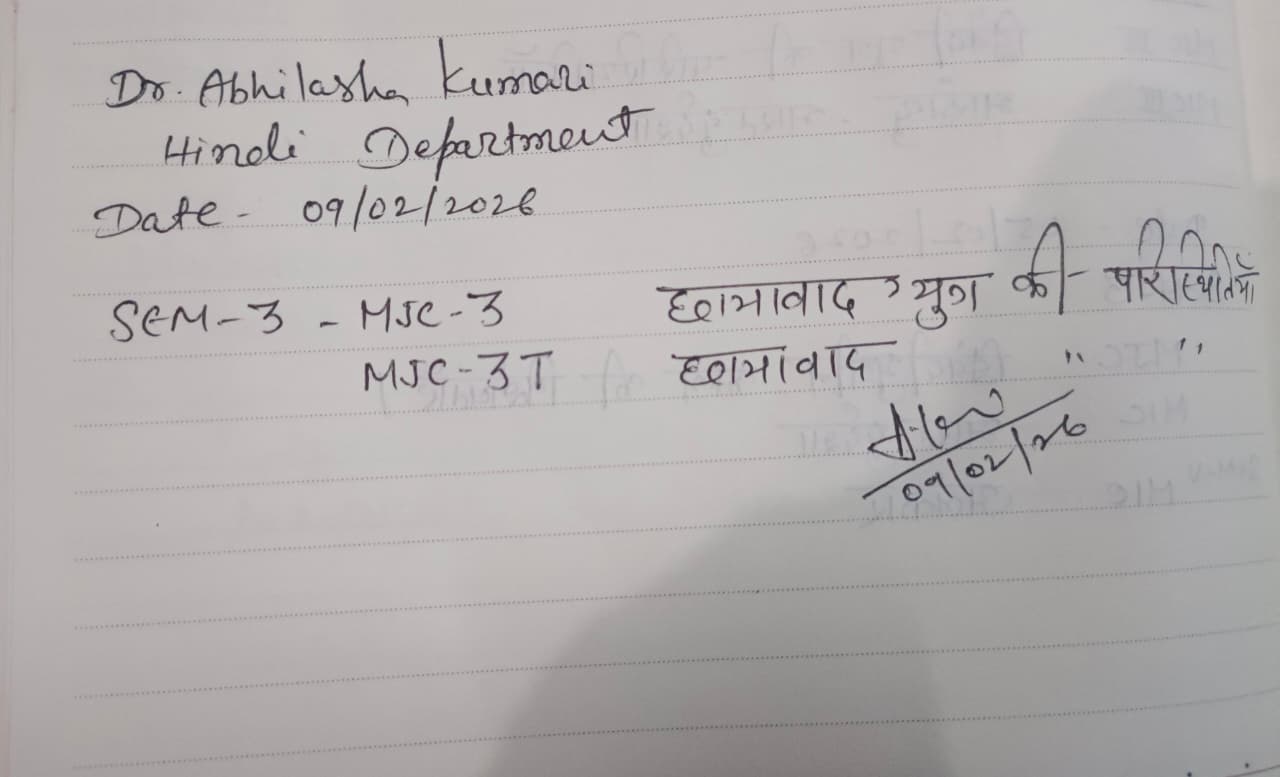 Dr. Abhilasha Kumari
Hindi Department
Date - 09/02/2026
SEM-3 - MJC-3 छायावाद युग की परिस्थितियाँ
MJC-3T छायावाद " "
09/02/26